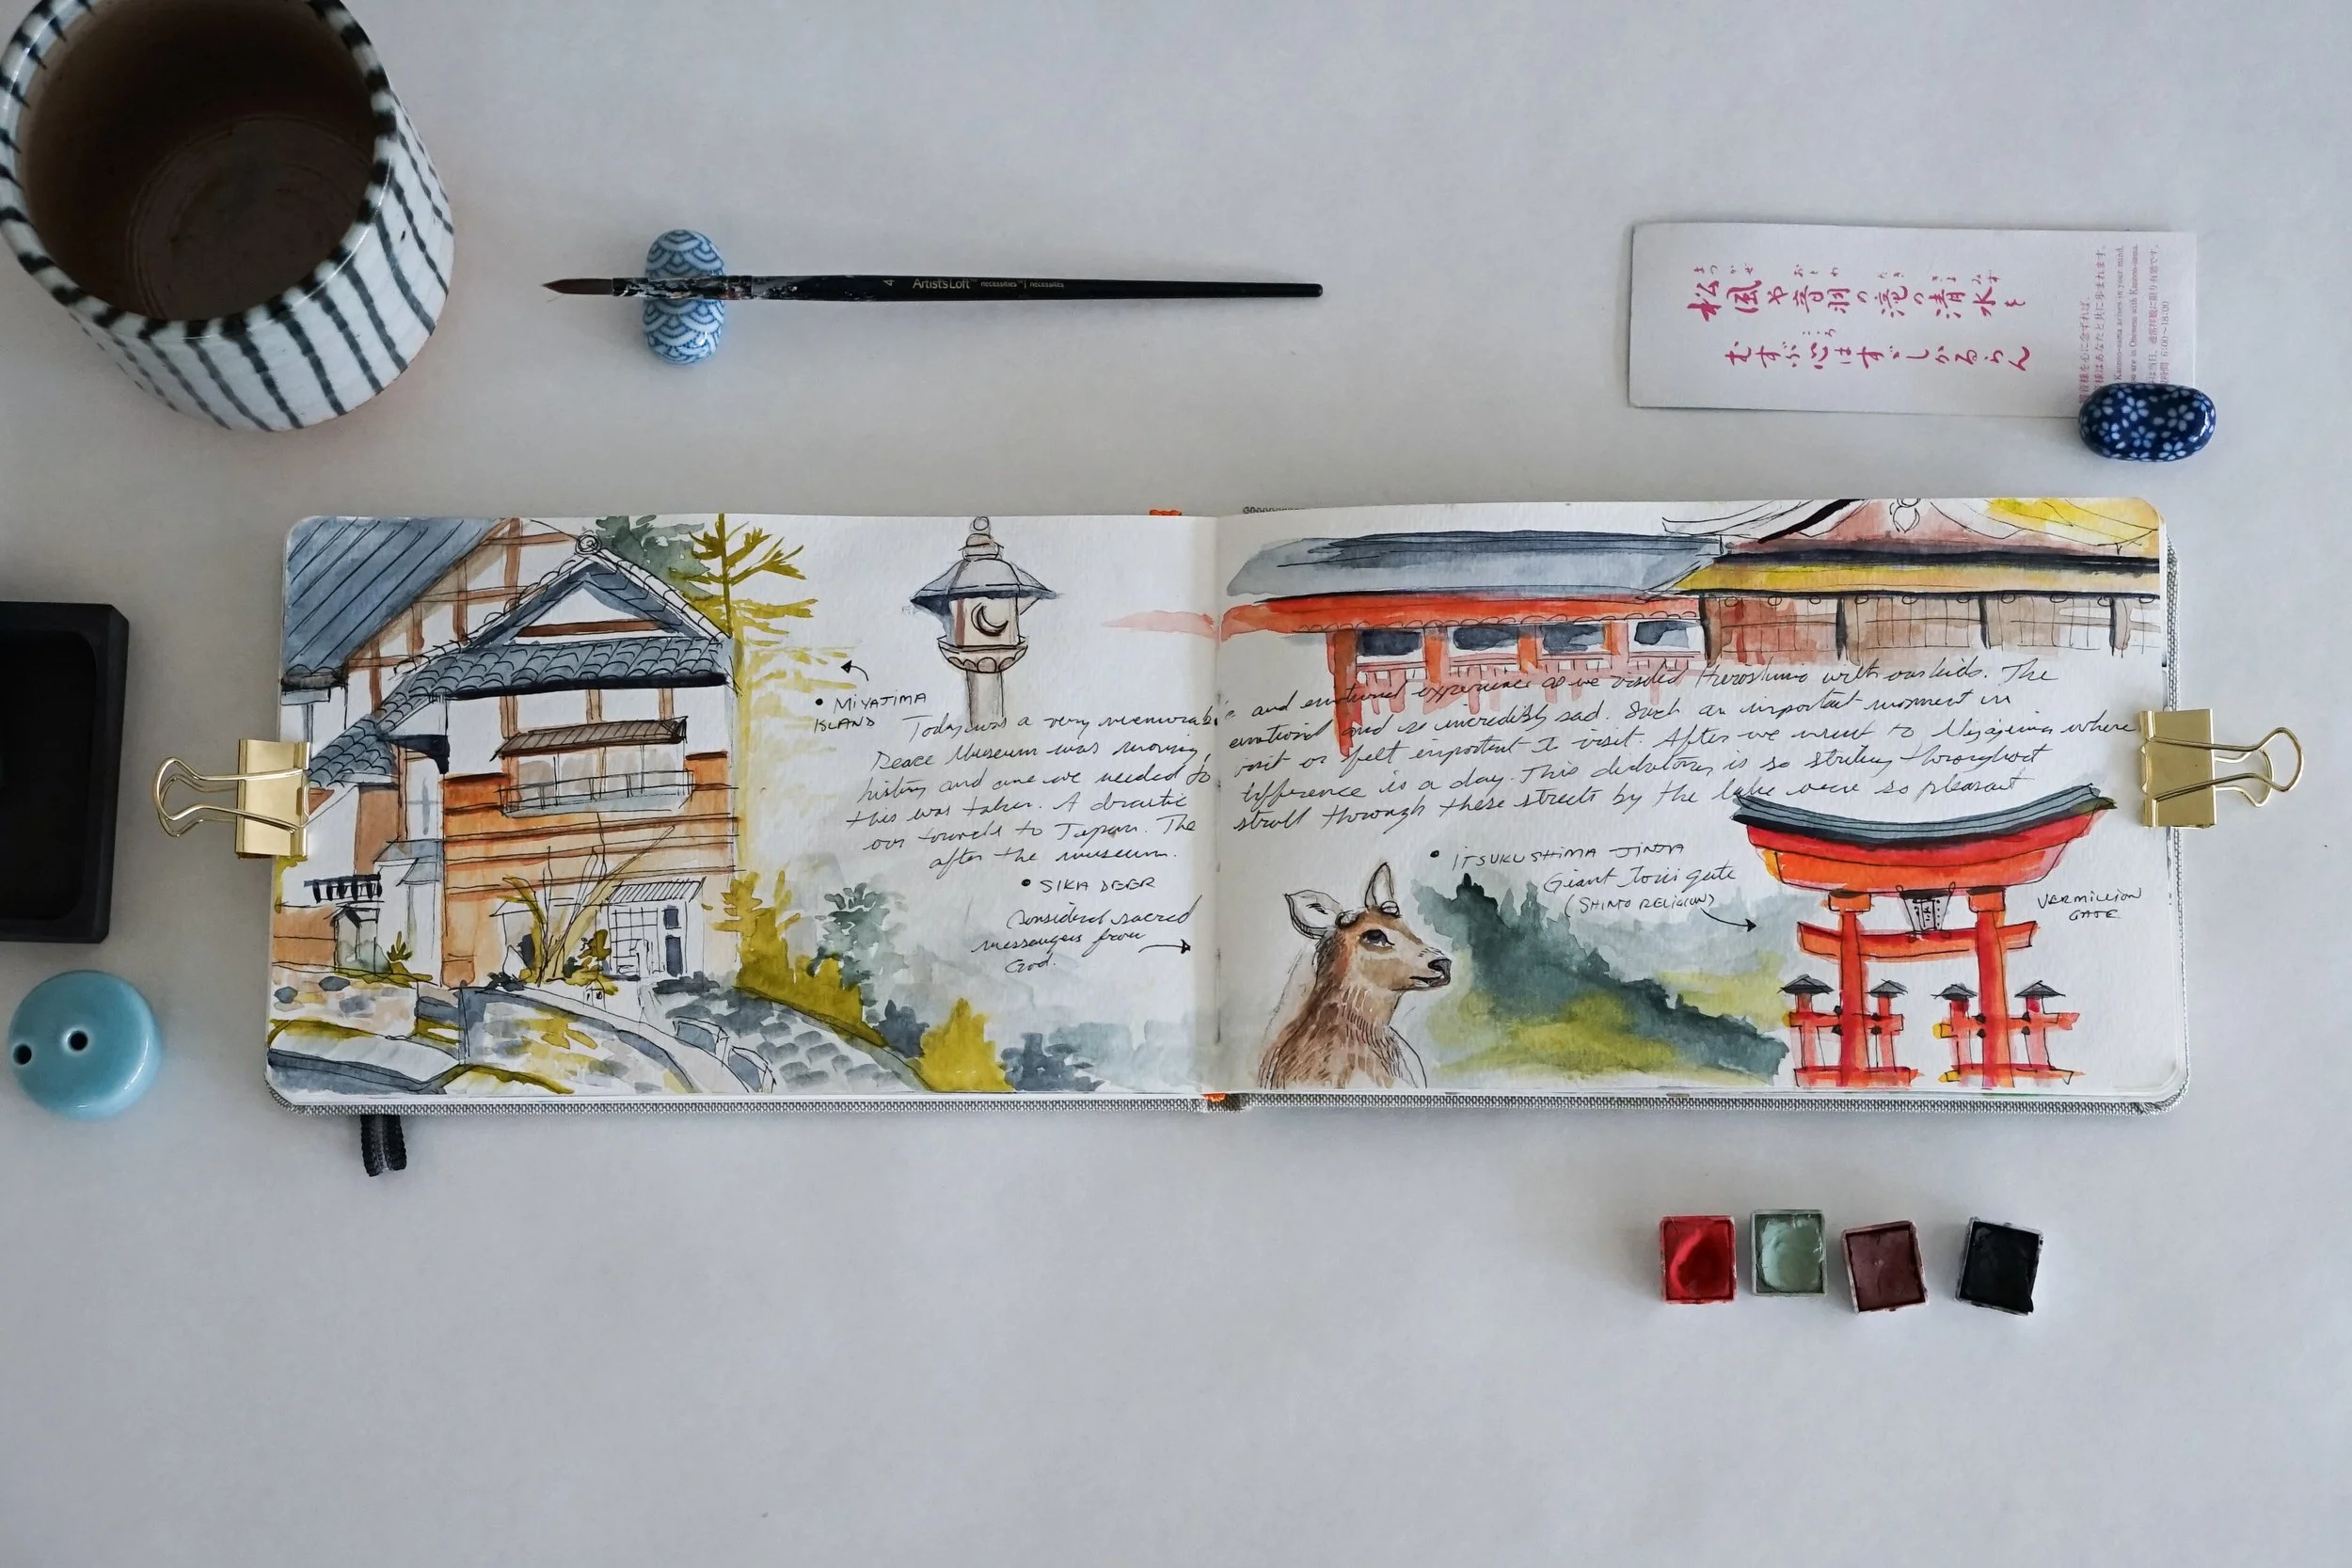 Artist'sLoft™ necessities™ necessaires
4
まつかぜ おとわ たき きよ みず
松風や音羽の滝の清水を
こころ
むすぶ心はすゞしかるらん
6:00~18:00
• MIYAJIMA
ISLAND
Today was a very memorable and emotional experience as we visited Hiroshima with our kids. The
Peace Museum was moving, emotional and so incredibly sad. Such an important moment in
history and one we needed to visit or felt important to visit. After we went to Miyajima where
this was taken. A drastic difference in a day. This is so striking throughout
our travels to Japan. The stroll through these streets by the were so pleasant
after the museum.
• SIKA DEER
Considered sacred
messengers from
God.
• ITSUKUSHIMA JINJA
Giant Torii gate
(SHINTO RELIGION)
VERMILLION
GATE